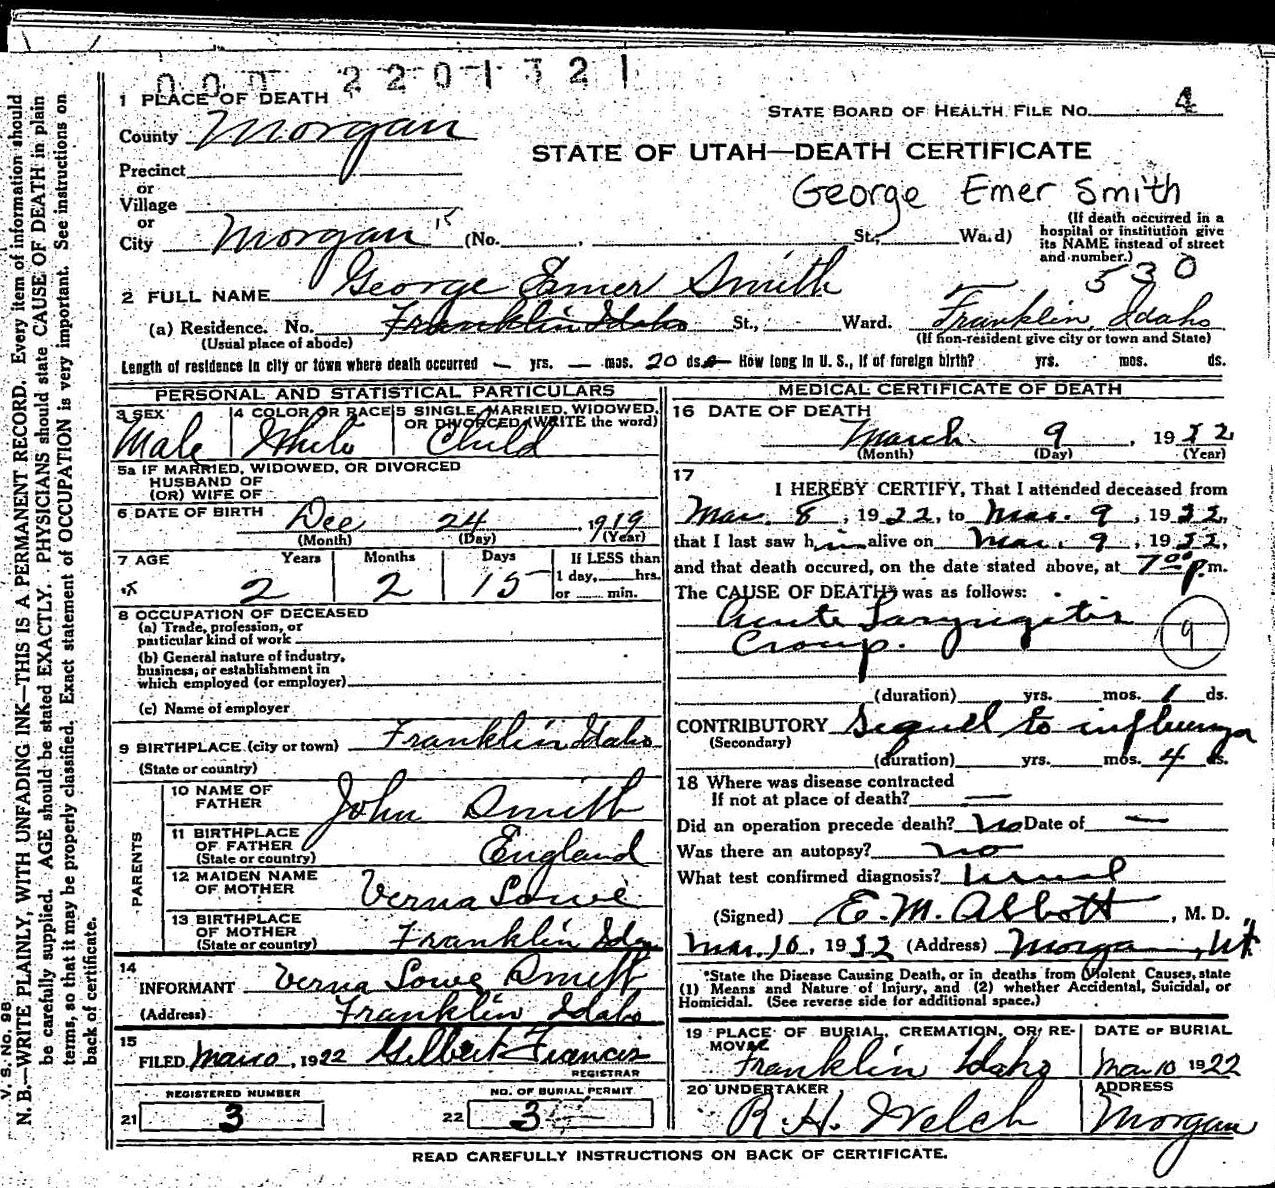 000 2201321
1 PLACE OF DEATH
STATE BOARD OF HEALTH FILE NO. 4
County Morgan
STATE OF UTAH—DEATH CERTIFICATE
Precinct
or
Village
George Emer Smith
or
City Morgan (No. , St., Ward)
(If death occurred in a hospital or institution give its NAME instead of street and number.)
530
2 FULL NAME George Emer Smith
(a) Residence. No. Franklin Idaho St., Ward. Franklin, Idaho
(Usual place of abode) (If non-resident give city or town and State)
Length of residence in city or town where death occurred — yrs. — mos. 20 ds. — How long in U. S., if of foreign birth? yrs. mos. ds.
PERSONAL AND STATISTICAL PARTICULARS
3 SEX 4 COLOR OR RACE 5 SINGLE, MARRIED, WIDOWED, OR DIVORCED (WRITE the word)
Male White Child
5a IF MARRIED, WIDOWED, OR DIVORCED
HUSBAND OF
(OR) WIFE OF
6 DATE OF BIRTH Dec 24, 1919
(Month) (Day) (Year)
7 AGE Years Months Days If LESS than
2 2 15 1 day, hrs.
or min.
8 OCCUPATION OF DECEASED
(a) Trade, profession, or
particular kind of work
(b) General nature of industry,
business, or establishment in
which employed (or employer)
(c) Name of employer
9 BIRTHPLACE (city or town) Franklin Idaho
(State or country)
PARENTS
10 NAME OF
FATHER John Smith
11 BIRTHPLACE
OF FATHER England
(State or country)
12 MAIDEN NAME
OF MOTHER Verna Lowe
13 BIRTHPLACE
OF MOTHER Franklin Ida
(State or country)
14
INFORMANT Verna Lowe Smith
(Address) Franklin Idaho
15
FILED Mar 10, 1922 Gilbert Francis
REGISTRAR
REGISTERED NUMBER NO. OF BURIAL PERMIT
21 3 22 3
MEDICAL CERTIFICATE OF DEATH
16 DATE OF DEATH
March 9, 1922
(Month) (Day) (Year)
17
I HEREBY CERTIFY, That I attended deceased from
Mar. 8, 1922, to Mar. 9, 1922,
that I last saw him alive on Mar. 9, 1922,
and that death occured, on the date stated above, at 7 00 p.m.
The CAUSE OF DEATH* was as follows:
Acute Laryngitis
Croup. 9
(duration) yrs. mos. 1 ds.
CONTRIBUTORY Sequel to influenza
(Secondary)
(duration) yrs. mos. 4 ds.
18 Where was disease contracted
If not at place of death? —
Did an operation precede death? No Date of —
Was there an autopsy? no
What test confirmed diagnosis? usual
(Signed) E. M. Abbott, M. D.
Mar. 10, 1922 (Address) Morgan, Ut
*State the Disease Causing Death, or in deaths from Violent Causes, state
(1) Means and Nature of Injury, and (2) whether Accidental, Suicidal, or
Homicidal. (See reverse side for additional space.)
19 PLACE OF BURIAL, CREMATION, OR RE- DATE OF BURIAL
MOVAL
Franklin Idaho Mar 10 1922
20 UNDERTAKER ADDRESS
R. H. Welch Morgan
READ CAREFULLY INSTRUCTIONS ON BACK OF CERTIFICATE.
V. S. No. 98
N. B.—WRITE PLAINLY, WITH UNFADING INK—THIS IS A PERMANENT RECORD. Every item of information should
be carefully supplied. AGE should be stated EXACTLY. PHYSICIANS should state CAUSE OF DEATH in plain
terms, so that it may be properly classified. Exact statement of OCCUPATION is very important. See instructions on
back of certificate.